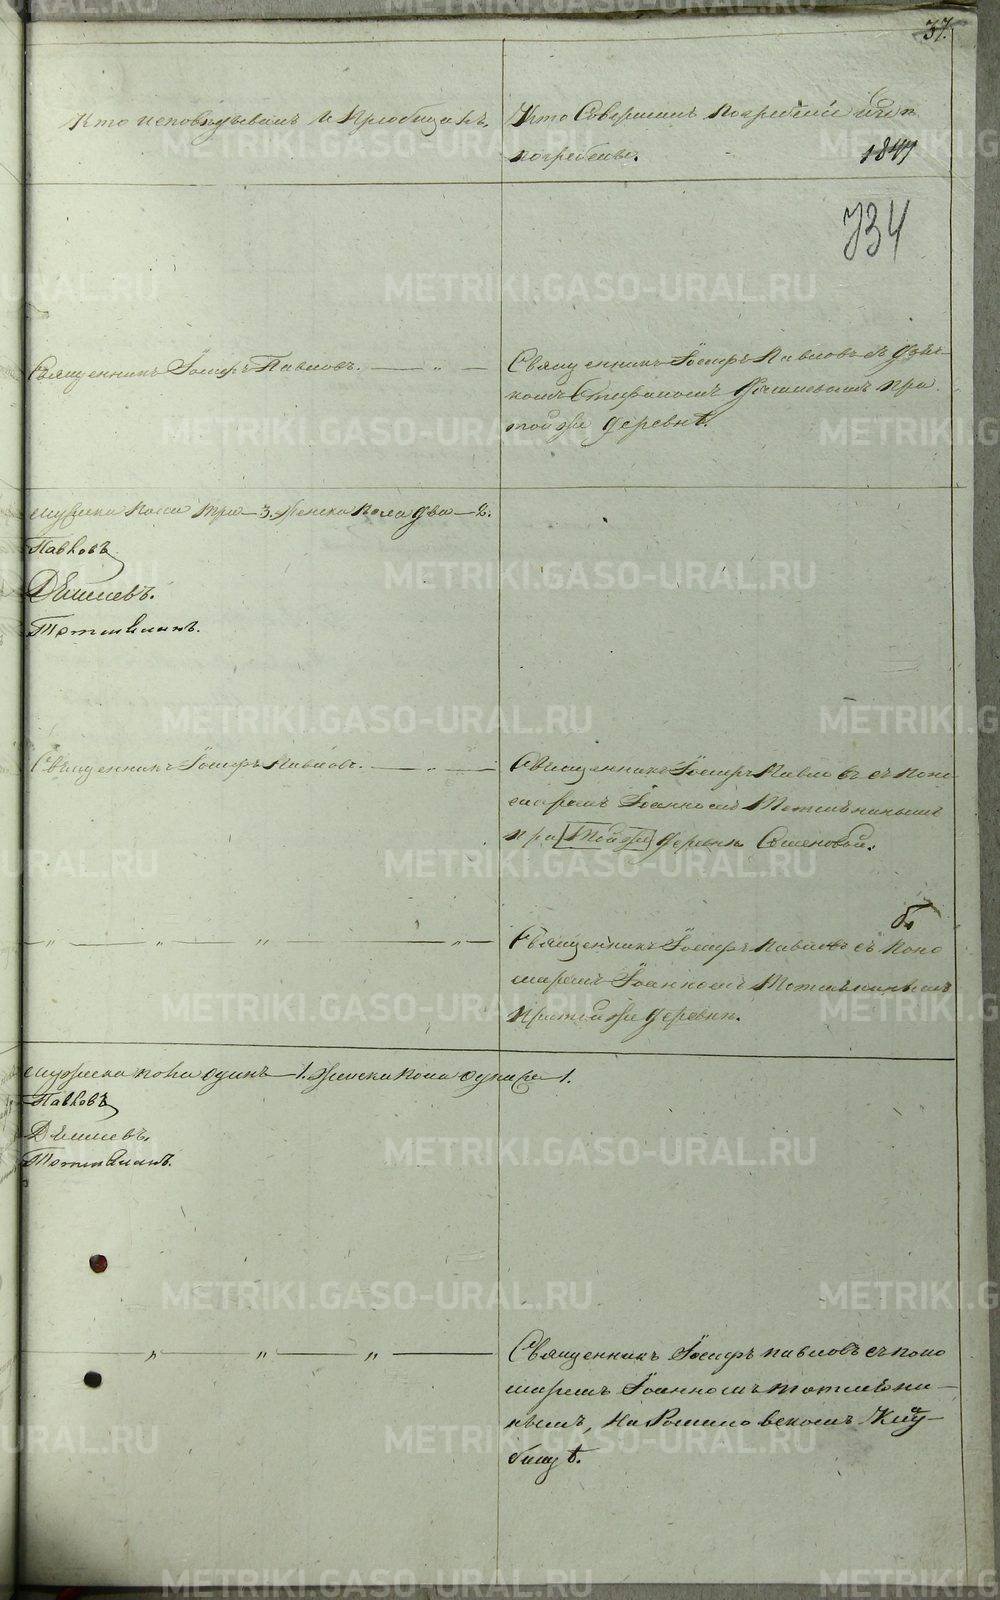 37.
Кто исповѣдывалъ и Пріобщалъ.
Кто Совершалъ погребеніе и гдѣ
погребены.
1841
734
Священникъ Іосифъ Павловъ. — „ —
Священникъ Іосифъ Павловъ съ Дья-
комъ Стефаномъ при
той же деревнѣ.
мужеска пола три — 3. Женска пола два — 2.
Павловъ
Дѣшлевъ.
Тотмянинъ.
Священникъ Іосифъ Павловъ. — „ —
Священникъ Іосифъ Павловъ съ поно
маремъ Іоанномъ Тотмянинымъ
при [той же] деревнѣ Семеновой.
— „ — „ — „ — „ —
Священникъ Іосифъ Павловъ съ поно
маремъ Іоанномъ Тотмянинымъ
притой же деревнѣ.
мужеска пола одинъ — 1. Женска пола одна — 1.
Павловъ
Дѣшлевъ.
Тотмянинъ.
— „ — „ — „ —
Священникъ Іосифъ Павловъ съ поно
маремъ Іоанномъ Тотмяни-
нымъ, на Кла-
бищѣ.
METRIKI.GASO-URAL.RU